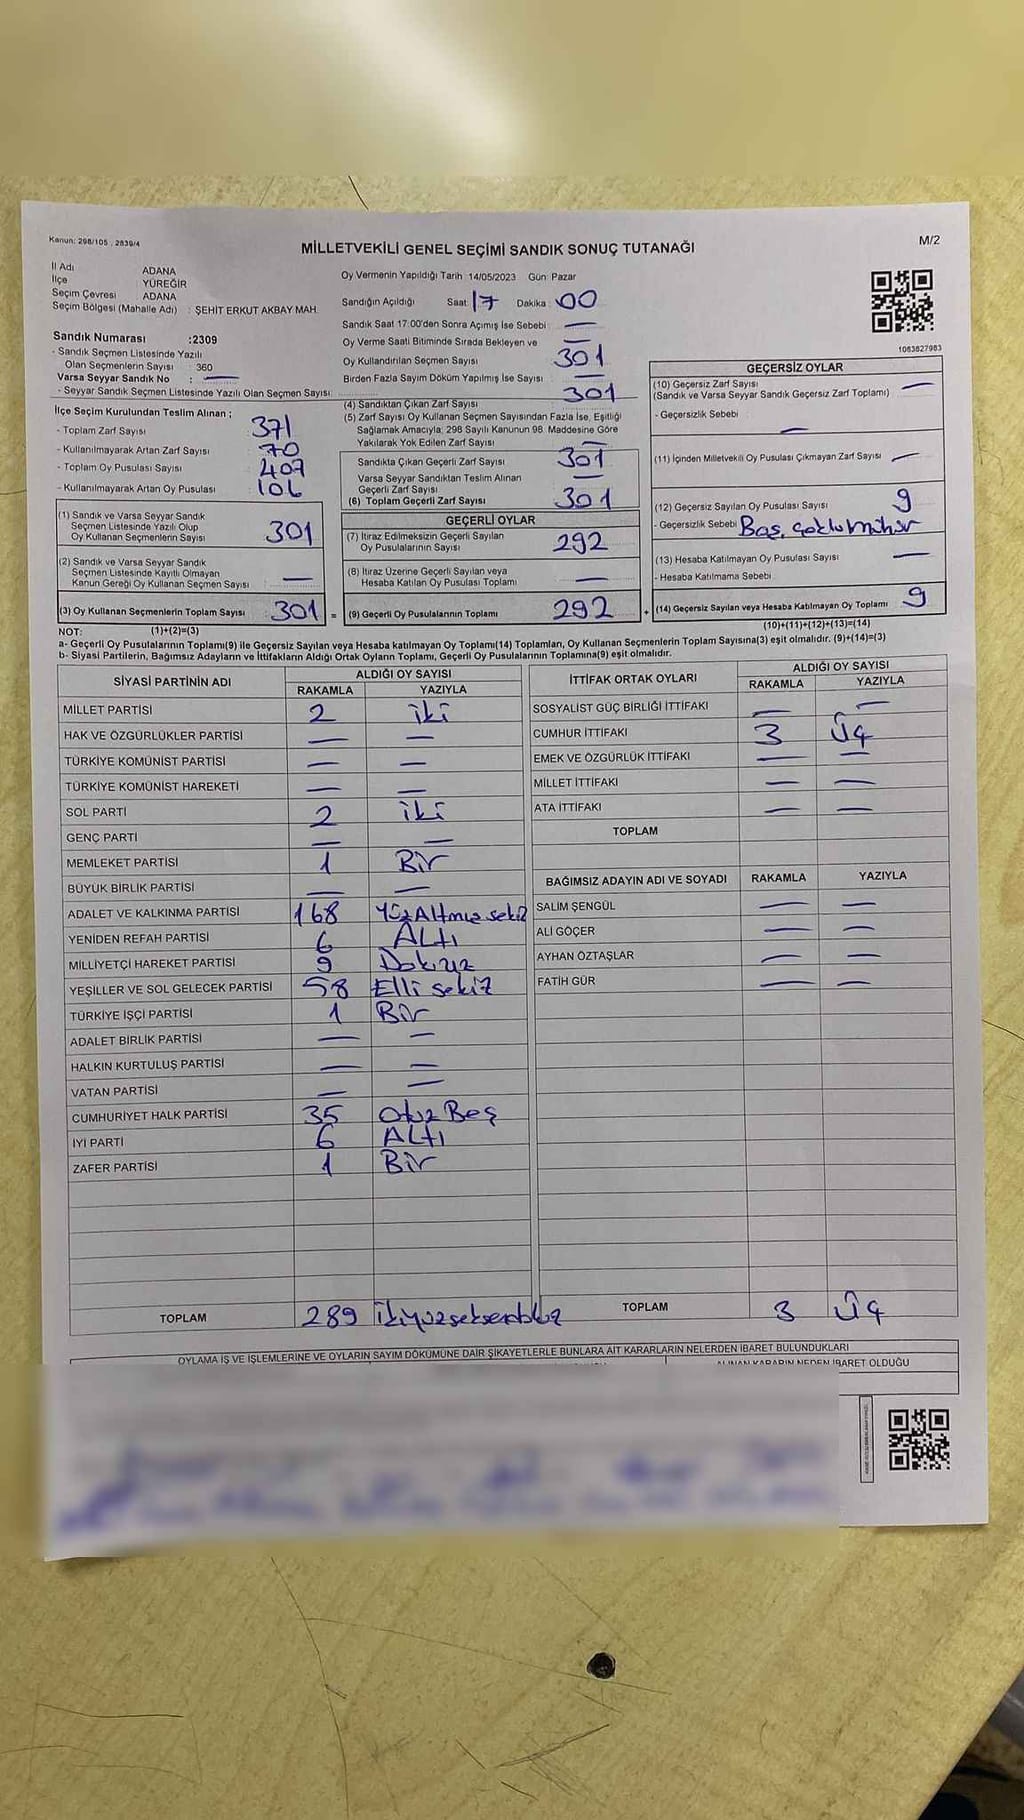 Kanun: 298/105 , 2839/4
M/2
MİLLETVEKİLİ GENEL SEÇİMİ SANDIK SONUÇ TUTANAĞI
İl Adı ADANA
İlçe YÜREĞİR
Seçim Çevresi ADANA
Seçim Bölgesi (Mahalle Adı) : ŞEHİT ERKUT AKBAY MAH.
Sandık Numarası :2309
- Sandık Seçmen Listesinde Yazılı
Olan Seçmenlerin Sayısı : 360
Varsa Seyyar Sandık No : —
- Seyyar Sandık Seçmen Listesinde Yazılı Olan Seçmen Sayısı:
İlçe Seçim Kurulundan Teslim Alınan ;
- Toplam Zarf Sayısı 371
- Kullanılmayarak Artan Zarf Sayısı 70
- Toplam Oy Pusulası Sayısı 407
- Kullanılmayarak Artan Oy Pusulası 106
(1) Sandık ve Varsa Seyyar Sandık
Seçmen Listesinde Yazılı Olup
Oy Kullanan Seçmenlerin Sayısı 301
(2) Sandık ve Varsa Seyyar Sandık
Seçmen Listesinde Kayıtlı Olmayan
Kanun Gereği Oy Kullanan Seçmen Sayısı —
(3) Oy Kullanan Seçmenlerin Toplam Sayısı 301 =
Oy Vermenin Yapıldığı Tarih : 14/05/2023 Gün: Pazar
Sandığın Açıldığı Saat: 17 Dakika: 00
Sandık Saat 17:00'den Sonra Açımış İse Sebebi : —
Oy Verme Saati Bitiminde Sırada Bekleyen ve —
Oy Kullandırılan Seçmen Sayısı 301
Birden Fazla Sayım Döküm Yapılmış İse Sayısı —
(4) Sandıktan Çıkan Zarf Sayısı 301
(5) Zarf Sayısı Oy Kullanan Seçmen Sayısından Fazla İse, Eşitliği
Sağlamak Amacıyla; 298 Sayılı Kanunun 98. Maddesine Göre
Yakılarak Yok Edilen Zarf Sayısı —
Sandıkta Çıkan Geçerli Zarf Sayısı 301
Varsa Seyyar Sandıktan Teslim Alınan
Geçerli Zarf Sayısı —
(6) Toplam Geçerli Zarf Sayısı 301
GEÇERLİ OYLAR
(7) İtiraz Edilmeksizin Geçerli Sayılan
Oy Pusulalarının Sayısı 292
(8) İtiraz Üzerine Geçerli Sayılan veya
Hesaba Katılan Oy Pusulası Toplamı —
(9) Geçerli Oy Pusulalarının Toplamı 292 +
1063827983
GEÇERSİZ OYLAR
(10) Geçersiz Zarf Sayısı —
(Sandık ve Varsa Seyyar Sandık Geçersiz Zarf Toplamı)
- Geçersizlik Sebebi —
(11) İçinden Milletvekili Oy Pusulası Çıkmayan Zarf Sayısı —
(12) Geçersiz Sayılan Oy Pusulası Sayısı 9
- Geçersizlik Sebebi Boş, Çoklu mühür
(13) Hesaba Katılmayan Oy Pusulası Sayısı —
- Hesaba Katılmama Sebebi
(14) Geçersiz Sayılan veya Hesaba Katılmayan Oy Toplamı 9
NOT: (1)+(2)=(3) (10)+(11)+(12)+(13)=(14)
a- Geçerli Oy Pusulalarının Toplamı(9) ile Geçersiz Sayılan veya Hesaba katılmayan Oy Toplamı(14) Toplamları, Oy Kullanan Seçmenlerin Toplam Sayısına(3) eşit olmalıdır. (9)+(14)=(3)
b- Siyasi Partilerin, Bağımsız Adayların ve İttifakların Aldığı Ortak Oyların Toplamı, Geçerli Oy Pusulalarının Toplamına(9) eşit olmalıdır.
SİYASİ PARTİNİN ADI ALDIĞI OY SAYISI
RAKAMLA YAZIYLA
MİLLET PARTİSİ 2 iki
HAK VE ÖZGÜRLÜKLER PARTİSİ — —
TÜRKİYE KOMÜNİST PARTİSİ — —
TÜRKİYE KOMÜNİST HAREKETİ — —
SOL PARTİ 2 iki
GENÇ PARTİ — —
MEMLEKET PARTİSİ 1 Bir
BÜYÜK BİRLİK PARTİSİ — —
ADALET VE KALKINMA PARTİSİ 168 YüzAltmış sekiz
YENİDEN REFAH PARTİSİ 6 ALtı
MİLLİYETÇİ HAREKET PARTİSİ 9 Dokuz
YEŞİLLER VE SOL GELECEK PARTİSİ 58 Elli sekiz
TÜRKİYE İŞÇİ PARTİSİ 1 Bir
ADALET BİRLİK PARTİSİ — —
HALKIN KURTULUŞ PARTİSİ — —
VATAN PARTİSİ — —
CUMHURİYET HALK PARTİSİ 35 Otuz Beş
İYİ PARTİ 6 ALtı
ZAFER PARTİSİ 1 Bir
TOPLAM 289 ikiyüzseksendokuz
İTTİFAK ORTAK OYLARI ALDIĞI OY SAYISI
RAKAMLA YAZIYLA
SOSYALİST GÜÇ BİRLİĞİ İTTİFAKI — —
CUMHUR İTTİFAKI 3 Üç
EMEK VE ÖZGÜRLÜK İTTİFAKI — —
MİLLET İTTİFAKI — —
ATA İTTİFAKI — —
TOPLAM
BAĞIMSIZ ADAYIN ADI VE SOYADI RAKAMLA YAZIYLA
SALİM ŞENGÜL — —
ALİ GÖÇER — —
AYHAN ÖZTAŞLAR — —
FATİH GÜR — —
TOPLAM 3 Üç
OYLAMA İŞ VE İŞLEMLERİNE VE OYLARIN SAYIM DÖKÜMÜNE DAİR ŞİKAYETLERLE BUNLARA AİT KARARLARIN NELERDEN İBARET BULUNDUKLARI
ALINAN KARARIN NEDEN İBARET OLDUĞU